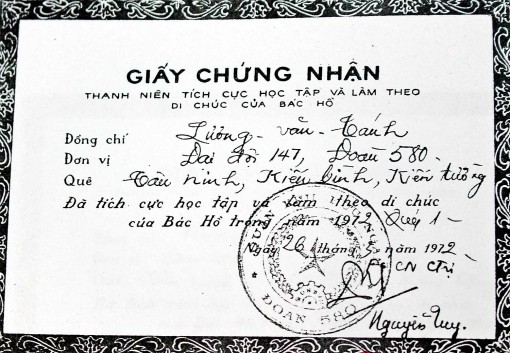 GIẤY CHỨNG NHẬN
THANH NIÊN TÍCH CỰC HỌC TẬP VÀ LÀM THEO
DI CHÚC CỦA BÁC HỒ
Đồng chí Lương văn Hánh
Đơn vị Đại đội 147, Đoàn 580-
Quê Tân ninh, Kiến bình, Kiến tường
Đã tích cực học tập và làm theo di chúc
của Bác Hồ trong năm 1972 Quý 1-
Ngày 26 tháng năm 1972-
CN Ctrị
ĐOÀN 580
Nguyễn Huy.